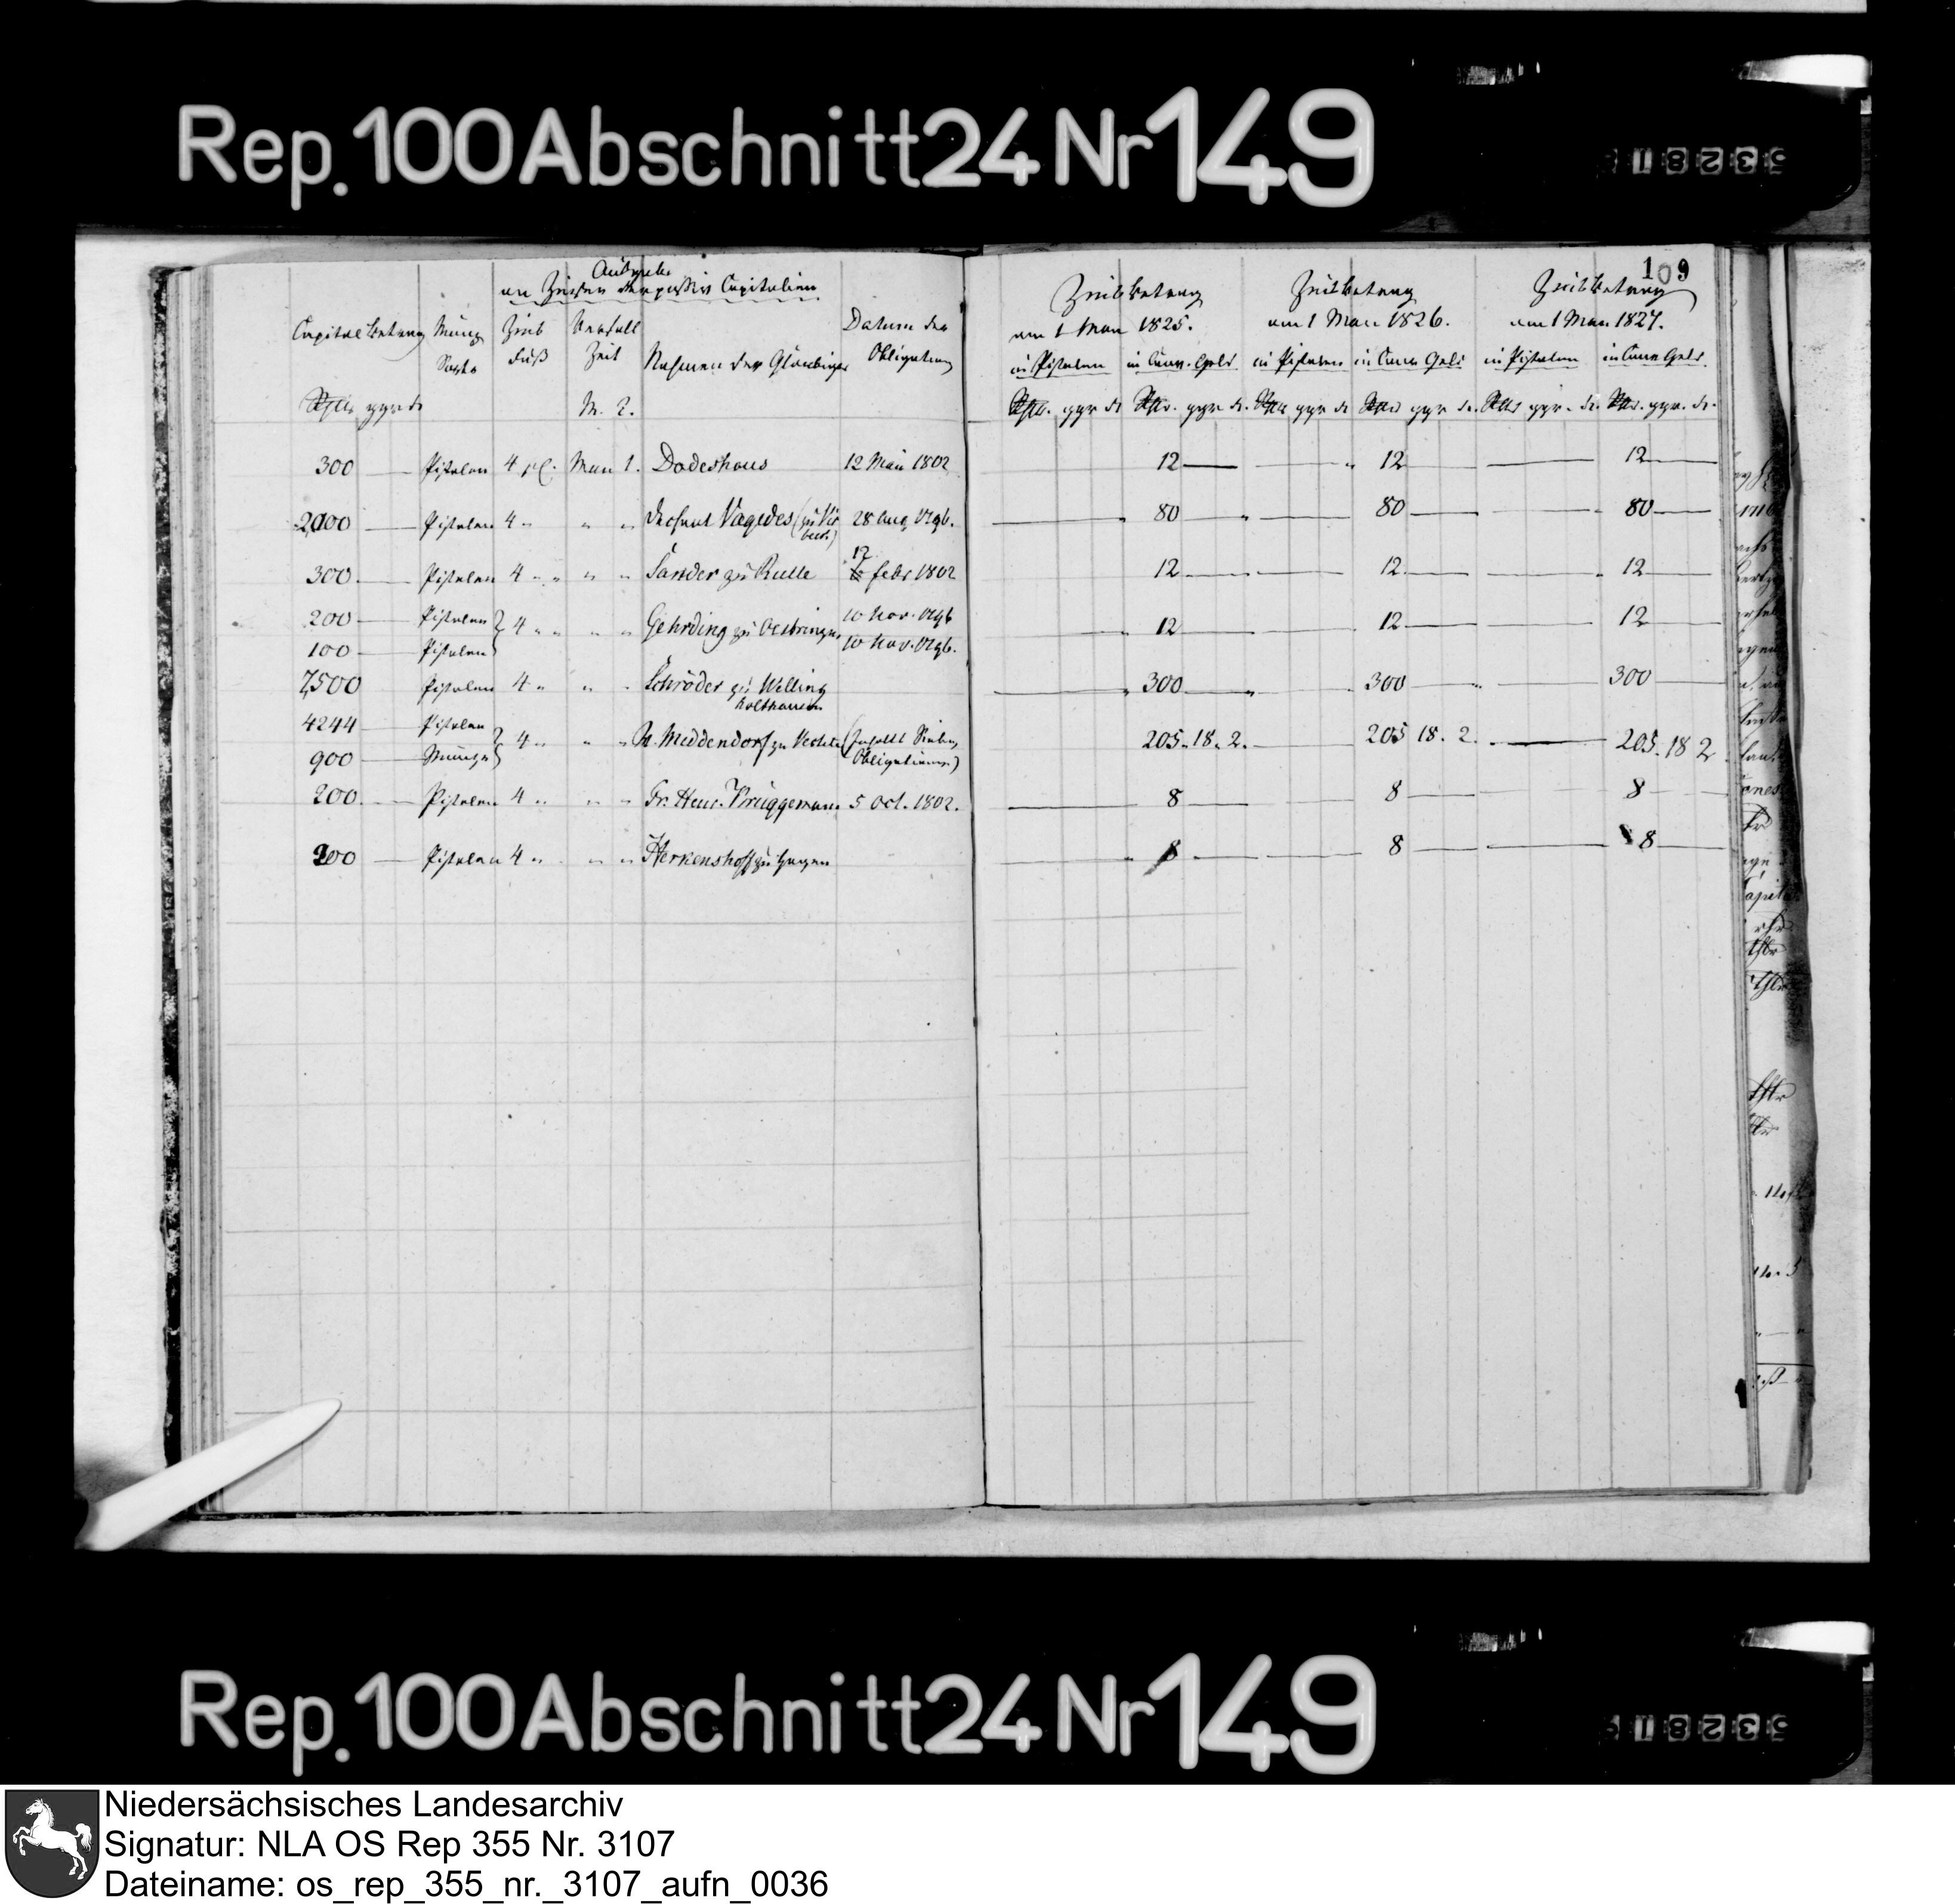 Rep. 100 Abschnitt 24 Nr 149
109
Ausgabe
an Zinsen der passiv Capitalien
Capital betrag Münz Sorte Zins Fuß Verfall Zeit Nahmen der Gläubiger Datum der Obligation
Rthlr ggr d M. T.
Zinsbetrag am 1 May 1825. Zinsbetrag am 1 May 1826. Zinsbetrag am 1 May 1827.
in Pistolen in Conv. Geld in Pistolen in Conv Geld in Pistolen in Conv Geld.
Rthlr. ggr d Rthlr. ggr d. Rthlr ggr d Rthlr ggr d. Rthlr ggr. d. Rthlr. ggr. d.
300 — Pistolen 4 pC. May 1. Dodeshaus 12 Mai 1802 12 — 12 — 12 —
2000 — Pistolen 4 " " " Vagedes 28 Aug 1796. 80 — 80 — 80 —
300 — Pistolen 4 " " " Sander zu Rulle 12 febr 1802 12 — 12 — 12 —
200 — Pistolen } 4 " " " Gehrding zu Oestringen 10 Nov. 1796 12 — 12 — 12 —
100 — Pistolen } 10 Nov. 1796.
7500 — Pistolen 4 " " " Schröder zu Welling holthausen 300 — 300 — 300 —
4244 — Pistolen } 4 " " " Meddendorf zu Vechta (Obligationen) 205. 18. 2. 205 18. 2. 205. 18 2
900 — Münze }
200 — Pistolen 4 " " " Fr. Henr. Brüggemann 5 Oct. 1802. 8 — 8 — 8 —
200 — Pistolen 4 " " " Herkenshoff zu Hagen 8 — 8 — 8 —
Rep. 100 Abschnitt 24 Nr 149
Niedersächsisches Landesarchiv
Signatur: NLA OS Rep 355 Nr. 3107
Dateiname: os_rep_355_nr._3107_aufn_0036